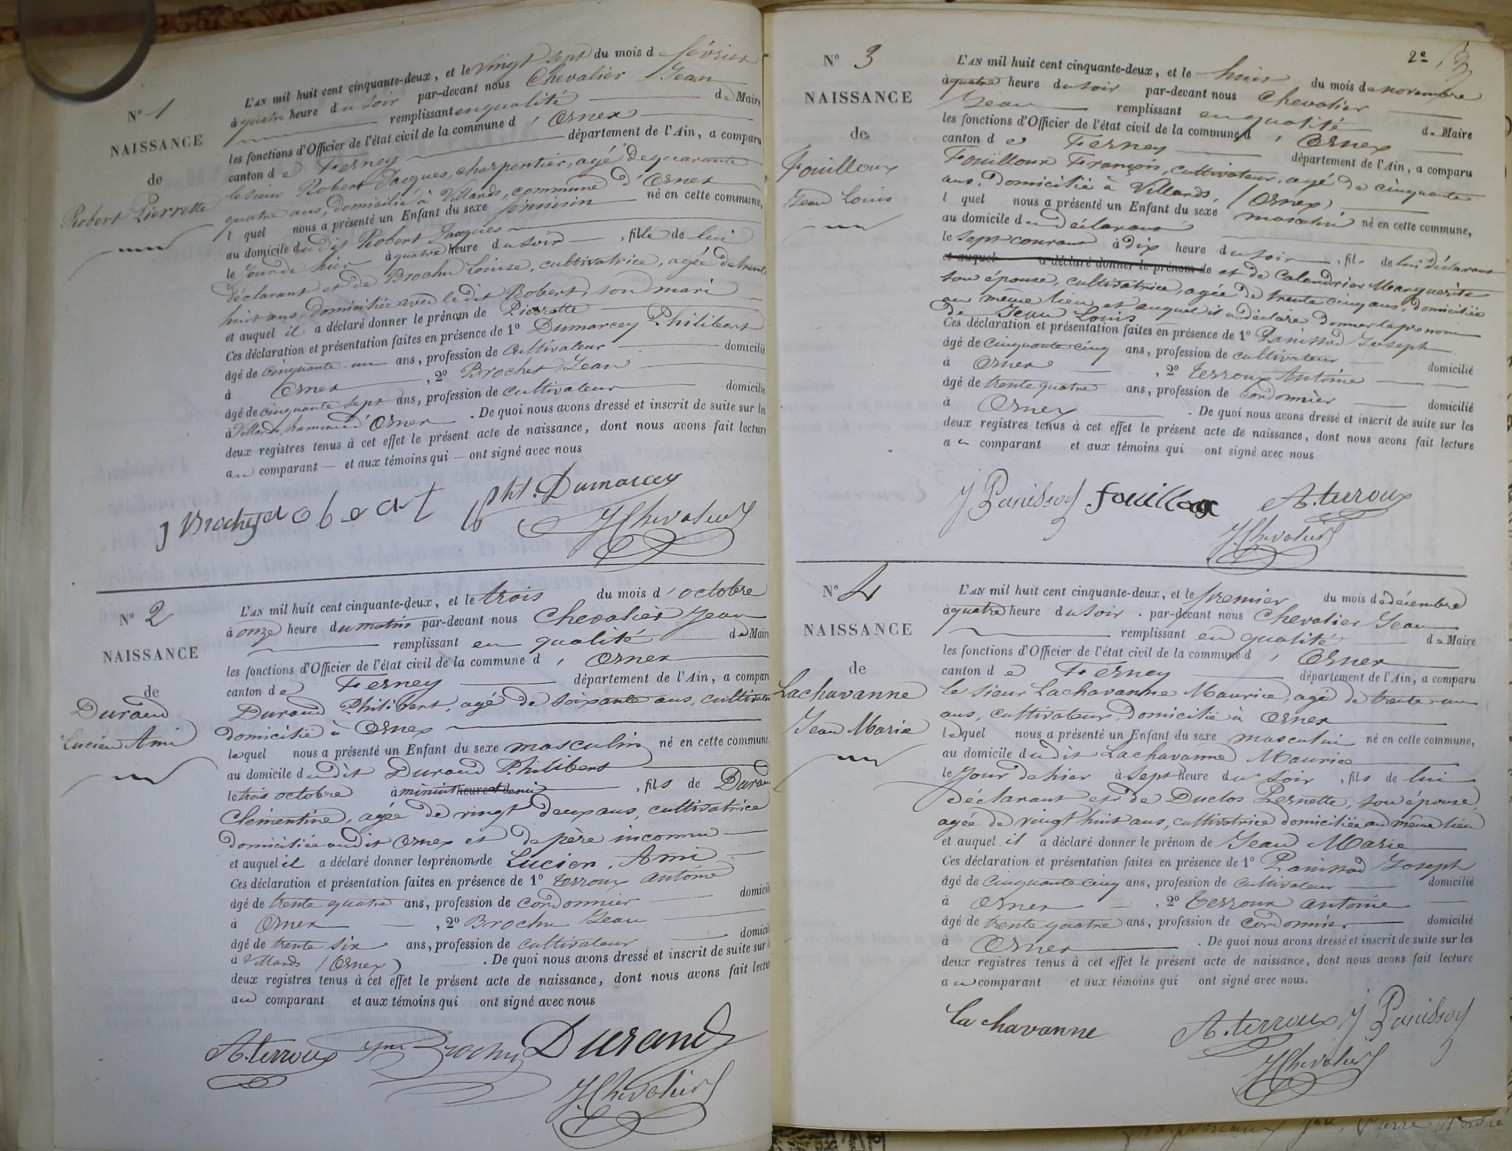 N° 1
NAISSANCE
de
Robert Pierrette
L'AN mil huit cent cinquante-deux, et le vingt sept du mois d février
à quatre heure du soir par-devant nous Chevalier Jean
remplissant en qualité de Maire
les fonctions d'Officier de l'état civil de la commune d' Ornex
canton de Ferney département de l'Ain, a comparu
le sieur Robert Jacques, charpentier, agé de quarante
quatre ans, domicilié à Villards, commune d'Ornex
l quel nous a présenté un Enfant du sexe féminin né en cette commune,
au domicile du dit Robert Jacques
le jour de hier à quatre heure du soir, fille de lui
déclarant et de Brochu Louise, cultivatrice, agée de trente
huit ans, domiciliée avec le dit Robert, son mari
et auquel il a déclaré donner le prénom de Pierrette
Ces déclaration et présentation faites en présence de 1° Dumarcey Philibert
âgé de cinquante un ans, profession de cultivateur domicilié
à Ornex, 2° Brochet Jean
âgé de cinquante sept ans, profession de cultivateur domicilié
à Villards, hameau d'Ornex. De quoi nous avons dressé et inscrit de suite sur les
deux registres tenus à cet effet le présent acte de naissance, dont nous avons fait lecture
au comparant et aux témoins qui ont signé avec nous
Robert Pht. Dumarcey
J Chevalier
N° 2
NAISSANCE
de
Durand
Lucien Ami
L'AN mil huit cent cinquante-deux, et le trois du mois d'octobre
à onze heure du matin par-devant nous Chevalier Jean
remplissant en qualité de Maire
les fonctions d'Officier de l'état civil de la commune d' Ornex
canton de Ferney département de l'Ain, a comparu
Durand Philibert, agé de soixante ans, cultivateur
domicilié à Ornex
lequel nous a présenté un Enfant du sexe masculin né en cette commune,
au domicile du dit Durand Philibert
le trois octobre à minuit heure et demi, fils de Durand
Clémentine, agée de vingt deux ans, cultivatrice
domiciliée au dit Ornex et de père inconnu
et auquel il a déclaré donner les prénoms de Lucien, Ami
Ces déclaration et présentation faites en présence de 1° Terroux Antoine
âgé de trente quatre ans, profession de cordonnier domicilié
à Ornex, 2° Brochu Jean
âgé de trente six ans, profession de cultivateur domicilié
à Villards (Ornex). De quoi nous avons dressé et inscrit de suite sur
deux registres tenus à cet effet le présent acte de naissance, dont nous avons fait lecture
au comparant et aux témoins qui ont signé avec nous
A. terroux Brochu Durand
J Chevalier
2e
N° 3
NAISSANCE
de
Fouilloux
Jean Louis
L'AN mil huit cent cinquante-deux, et le huit du mois de novembre
à quatre heure du soir par-devant nous Chevalier
Jean remplissant en qualité de Maire
les fonctions d'Officier de l'état civil de la commune d' Ornex
canton de Ferney département de l'Ain, a comparu
Fouilloux François, cultivateur, agé de cinquante
ans, domicilié à Villards, (Ornex)
l quel nous a présenté un Enfant du sexe masculin né en cette commune,
au domicile du déclarant
le sept courant à dix heure du soir, fils de lui déclarant
et auquel a déclaré donner le prénom de et de Calendrier Marguerite
son épouse, cultivatrice, agée de trente cinq ans, domiciliée
au même lieu, et auquel il a déclaré donner le prénom
de Jean Louis
Ces déclaration et présentation faites en présence de 1° Panissod Joseph
âgé de cinquante cinq ans, profession de cultivateur domicilié
à Ornex, 2° Terroux Antoine
âgé de trente quatre ans, profession de cordonnier domicilié
à Ornex. De quoi nous avons dressé et inscrit de suite sur les
deux registres tenus à cet effet le présent acte de naissance, dont nous avons fait lecture
au comparant et aux témoins qui ont signé avec nous
J Panissod fouilloux A. terroux
J. Chevalier
N° 4
NAISSANCE
de
Lachavanne
Jean Marie
L'AN mil huit cent cinquante-deux, et le premier du mois de décembre
à quatre heure du soir par-devant nous Chevalier Jean
remplissant en qualité de Maire
les fonctions d'Officier de l'état civil de la commune d' Ornex
canton de Ferney département de l'Ain, a comparu
le sieur Lachavanne Maurice, agé de trente un
ans, cultivateur, domicilié à Ornex
lequel nous a présenté un Enfant du sexe masculin né en cette commune,
au domicile du dit Lachavanne Maurice
le jour de hier à sept heure du soir, fils de lui
déclarant et de Duclos Pernette, son épouse,
agée de vingt huit ans, cultivatrice domiciliée au même lieu
et auquel il a déclaré donner le prénom de Jean Marie
Ces déclaration et présentation faites en présence de 1° Panissod Joseph
âgé de cinquante cinq ans, profession de cultivateur domicilié
à Ornex, 2° Terroux Antoine
âgé de trente quatre ans, profession de cordonnier domicilié
à Ornex. De quoi nous avons dressé et inscrit de suite sur les
deux registres tenus à cet effet le présent acte de naissance, dont nous avons fait lecture
au comparant et aux témoins qui ont signé avec nous.
la chavanne A. terroux J Panissod
J Chevalier